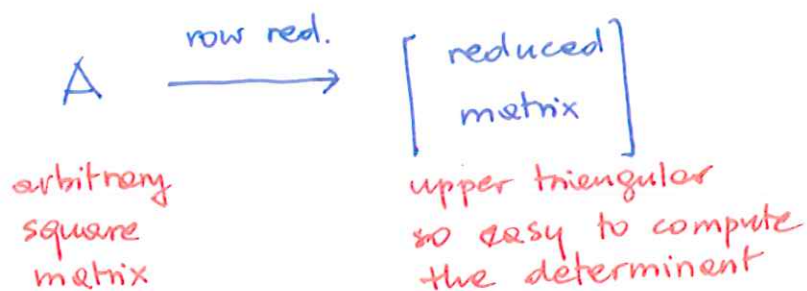 row red.
A
reduced
matrix
arbitrary
square
matrix
upper triangular
so easy to compute
the determinant